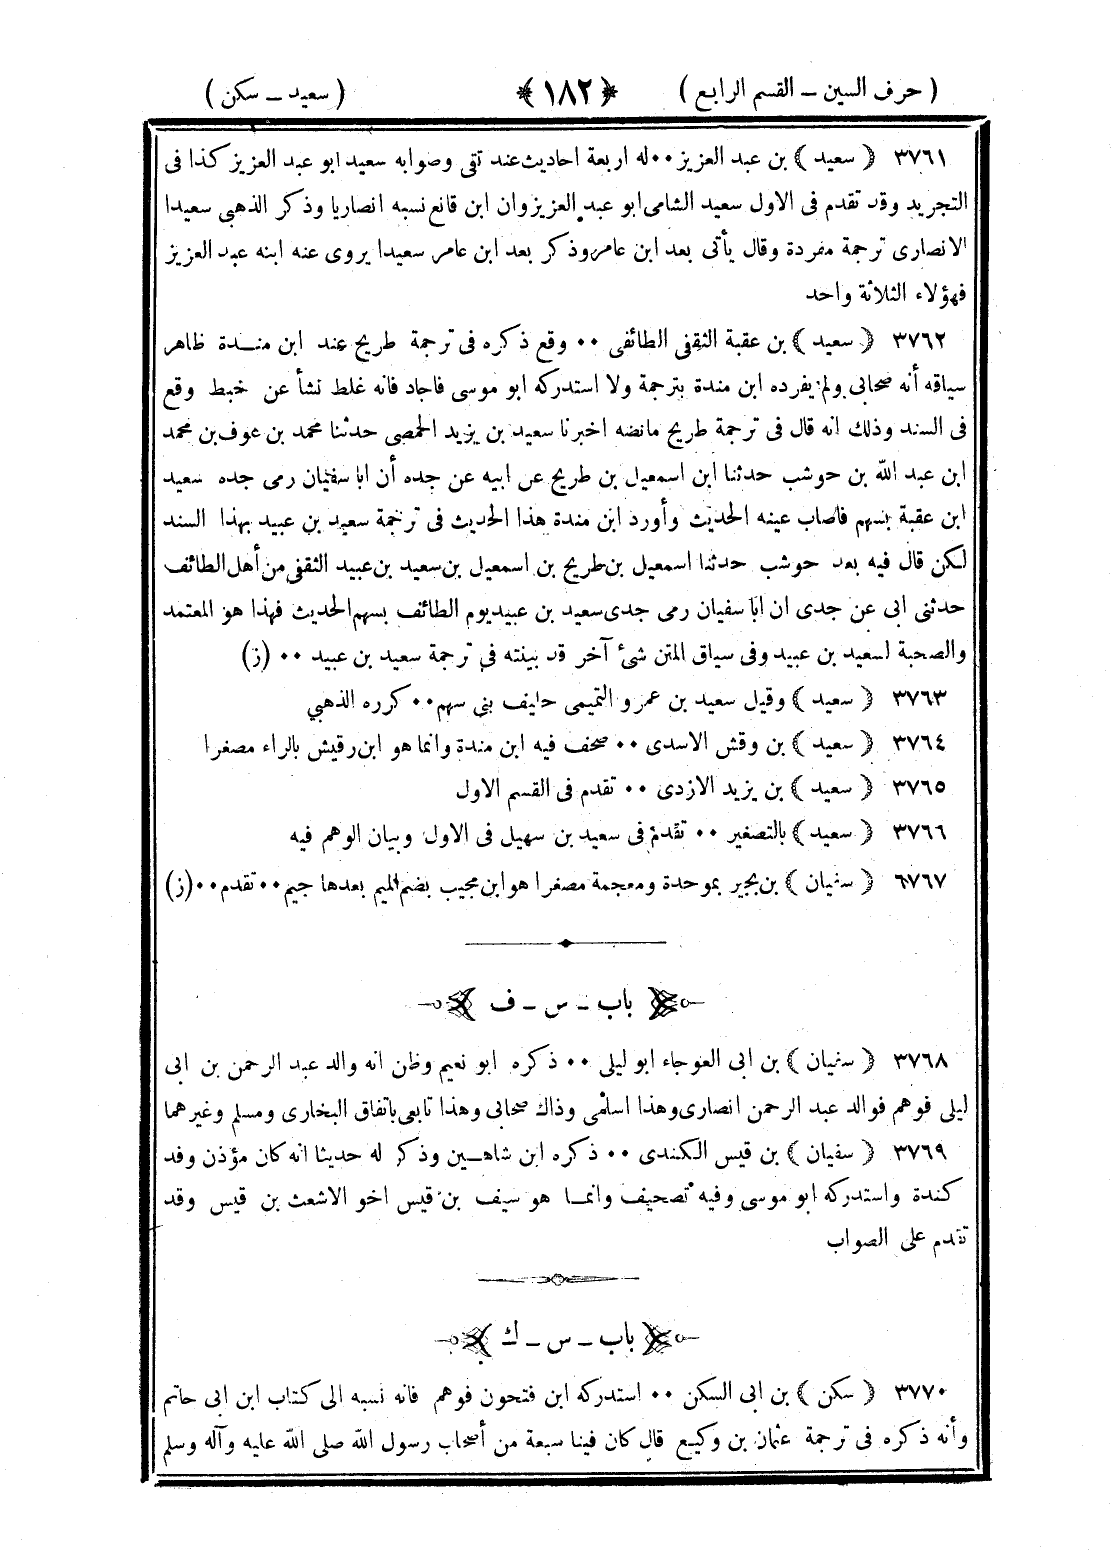 ( حرف السين – القسم الرابع ) ﴿ ١٨٢ ﴾ ( سعيد – سكن )
٣٧٦١ ﴿ سعيد ﴾ بن عبد العزيز ٠٠ له اربعة احاديث عند تقى وصوابه سعيد ابو عبد العزيز كذا فى
التجريد وقد تقدم فى الاول سعيد الشامى ابو عبد العزيز وان ابن قانع نسبه انصاريا وذكر الذهبي سعيدا
الانصارى ترجمة مفردة وقال يأتى بعد ابن عامر وذكر بعد ابن عامر سعيدا يروى عنه ابنه عبد العزيز
فهؤلاء الثلاثة واحد
٣٧٦٢ ﴿ سعيد ﴾ بن عقبة الثقفى الطائفى ٠٠ وقع ذكره فى ترجمة طريح عند ابن منـــدة ظاهر
سياقه أنه صحابي ولم يفرده ابن مندة بترجمة ولا استدركه ابو موسى فاجاد فانه غلط نشأ عن خبط وقع
فى السند وذلك انه قال فى ترجمة طريح مانصه اخبرنا سعيد بن يزيد الحمصى حدثنا محمد بن عوف بن محمد
ابن عبد الله بن حوشب حدثنا ابن اسمعيل بن طريح عن ابيه عن جده أن ابا سفيان رمى جده سعيد
ابن عقبة بسهم فاصاب عينه الحديث وأورد ابن مندة هذا الحديث فى ترجمة سعيد بن عبيد بهذا السند
لكن قال فيه بعد حوشب حدثنا اسمعيل بن طريح بن اسمعيل بن سعيد بن عبيد الثقفى من أهل الطائف
حدثنى ابى عن جدى ان ابا سفيان رمى جدى سعيد بن عبيد يوم الطائف بسهم الحديث فهذا هو المعتمد
والصحبة لسعيد بن عبيد وفى سياق المتن شئ آخر قد بينته فى ترجمة سعيد بن عبيد ٠٠ (ز)
٣٧٦٣ ﴿ سعيد ﴾ وقيل سعيد بن عمرو التميمى حليف بنى سهم ٠٠ كرره الذهبي
٣٧٦٤ ﴿ سعيد ﴾ بن وقش الاسدى ٠٠ صحف فيه ابن مندة وانما هو ابن رقيش بالراء مصغرا
٣٧٦٥ ﴿ سعيد ﴾ بن يزيد الازدى ٠٠ تقدم فى القسم الاول
٣٧٦٦ ﴿ سعيد ﴾ بالتصغير ٠٠ تقدم فى سعيد بن سهيل فى الاول وبيان الوهم فيه
٦٧٦٧ ﴿ سفيان ﴾ بن بجير بموحدة ومعجمة مصغرا هو ابن مجيب بضم الميم بعدها جيم ٠٠ تقدم ٠٠ (ز)
باب – س – ف
٣٧٦٨ ﴿ سفيان ﴾ بن ابى العوجاء ابو ليلى ٠٠ ذكره ابو نعيم وظن انه والد عبد الرحمن بن ابى
ليلى فوهم فوالد عبد الرحمن انصارى وهذا اسلمى وذاك صحابى وهذا تابعى باتفاق البخارى ومسلم وغيرهما
٣٧٦٩ ﴿ سفيان ﴾ بن قيس الكندى ٠٠ ذكره ابن شاهــين وذكر له حديثا انه كان مؤذن وفد
كندة واستدركه ابو موسى وفيه تصحيف وانمــا هو سيف بن قيس اخو الاشعث بن قيس وقد
تقدم على الصواب
باب – س – ك
٣٧٧٠ ﴿ سكن ﴾ بن ابى السكن ٠٠ استدركه ابن فتحون فوهم فانه نسبه الى كتاب ابن ابى حاتم
وأنه ذكره فى ترجمة عثمان بن وكيع قال كان فينا سبعة من أصحاب رسول الله صلى الله عليه وآله وسلم